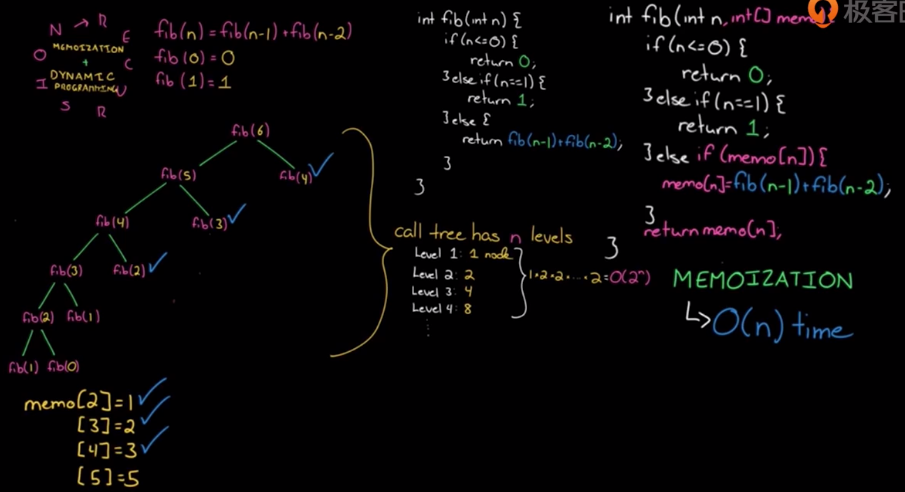 RECURSION
MEMOIZATION
+
DYNAMIC
PROGRAMMING
fib(n)=fib(n-1)+fib(n-2)
fib(0)=0
fib(1)=1
fib(6)
fib(5) fib(4)
fib(4) fib(3)
fib(3) fib(2)
fib(2) fib(1)
fib(1) fib(0)
memo[2]=1
[3]=2
[4]=3
[5]=5
int fib(int n) {
if(n<=0) {
return 0;
}else if(n==1){
return 1;
}else {
return fib(n-1)+fib(n-2);
}
}
call tree has n levels
Level 1: 1 node
Level 2: 2
Level 3: 4
Level 4: 8
⋮
1•2•2•...•2=O(2ⁿ)
int fib(int n, int[] memo
if(n<=0) {
return 0;
}else if(n==1){
return 1;
}else if (memo[n]){
memo[n]=fib(n-1)+fib(n-2);
}
return memo[n];
}
MEMOIZATION
↳O(n) time
极客